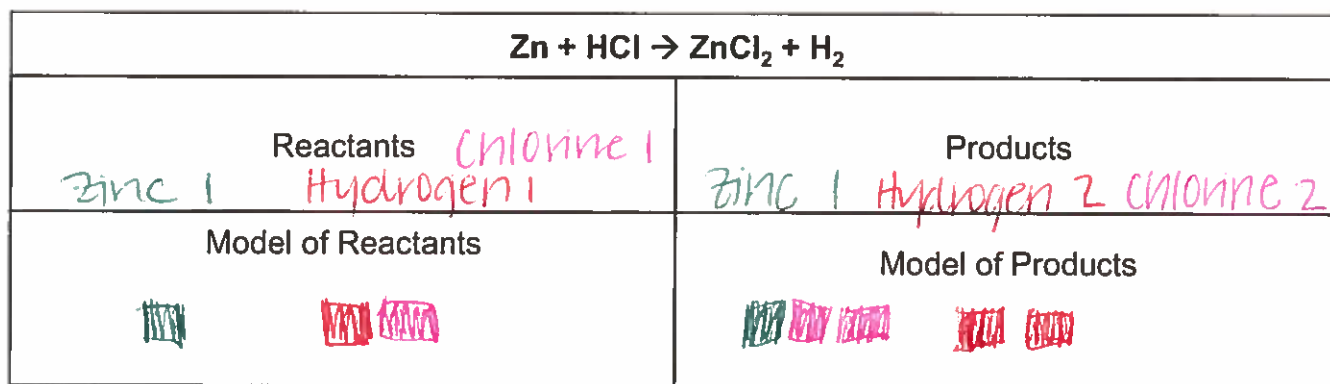 Zn + HCl → ZnCl₂ + H₂
Reactants Chlorine 1
Zinc 1 Hydrogen 1
Products
Zinc 1 Hydrogen 2 Chlorine 2
Model of Reactants
Model of Products